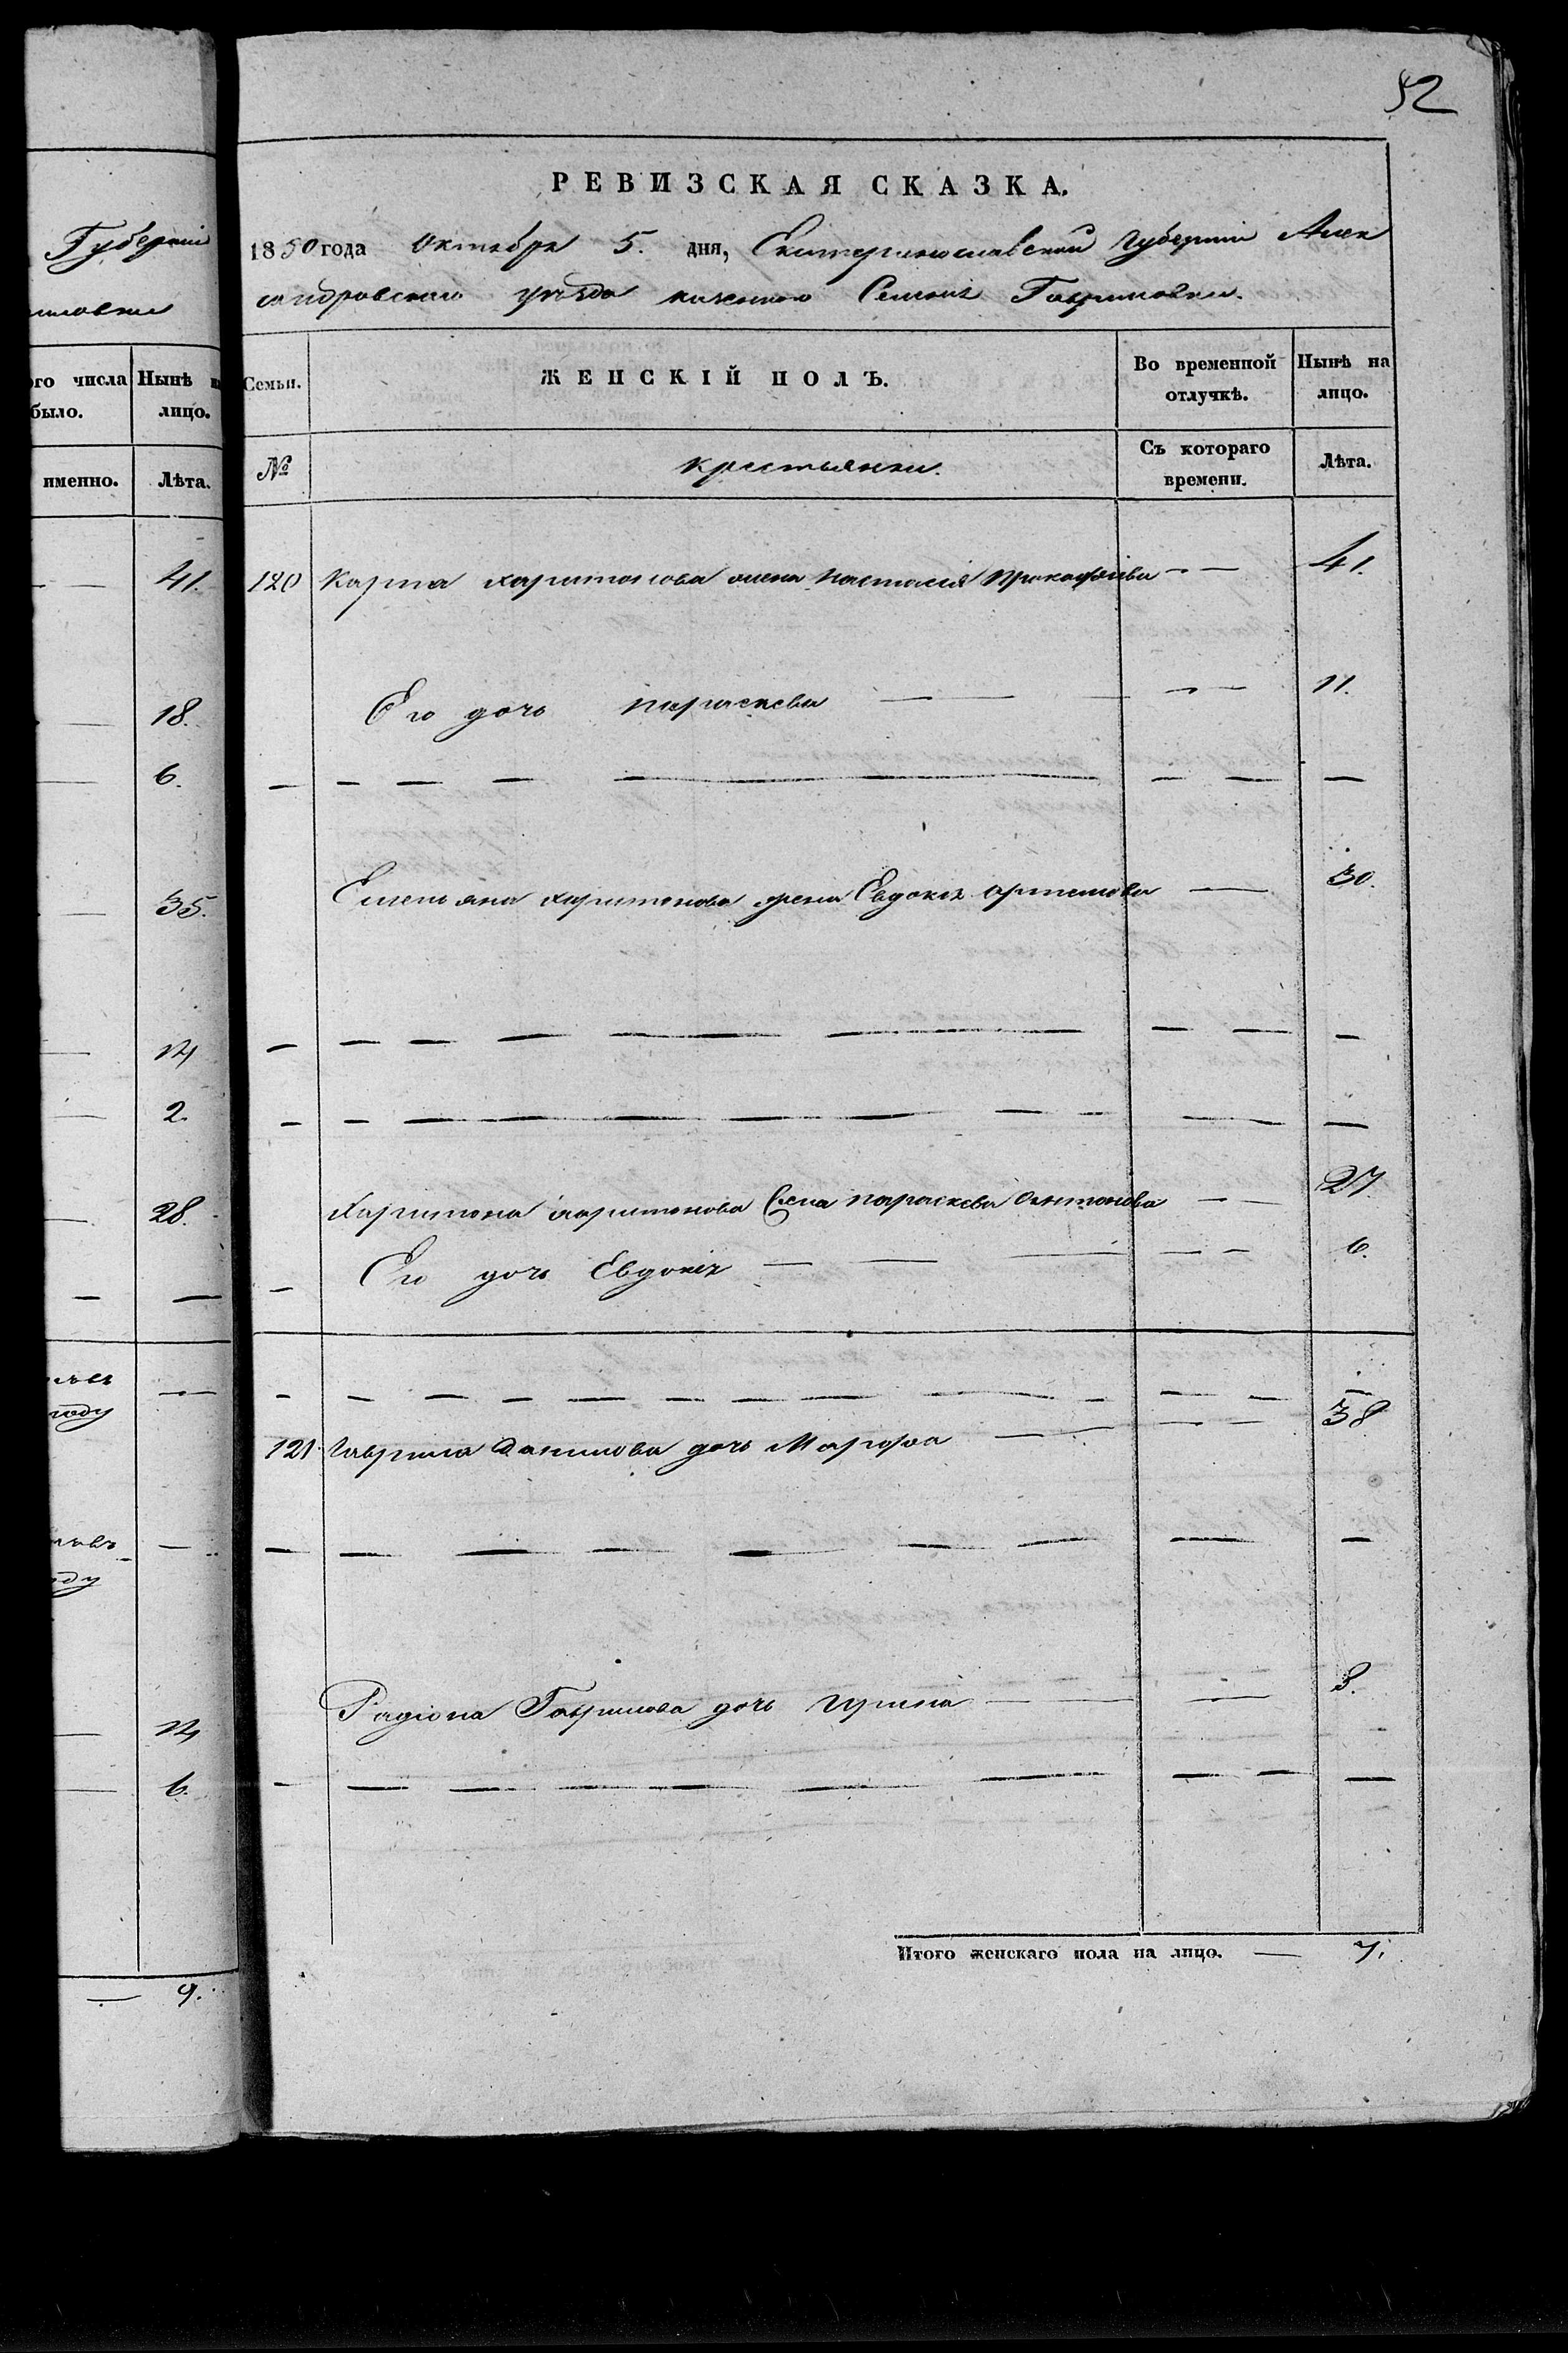 52
РЕВИЗСКАЯ СКАЗКА.
1850 года Октября 5. дня, Екатеринославской Губернии Алек
сандровского уезда казенного Селения Гавриловки.
Губернии
иловки
ого числа Нынѣ н
было. лицо.
именно. Лѣта.
Семьи. ЖЕНСКІЙ ПОЛЪ. Во временной отлучкѣ. Нынѣ на лицо.
№ крестьянки. Съ котораго времени. Лѣта.
41.
120 Карпа харитонова жена Наталия Прокофиева — — 41.
18.
Его дочь параскева — — — 11.
6.
35.
Емельяна харитонова жена Евдокия артемова — 30.
14
2.
28.
Харитона харитонова жена параскева Антонова — — 27
Его дочь Евдокия — — — — 6.
году
121. Гаврила Данилова дочь Марфа — — — 38
оду
Радиона Гаврилова дочь Ирина — — 3.
14
6.
Итого женскаго пола на лицо. — 7.
— 9.